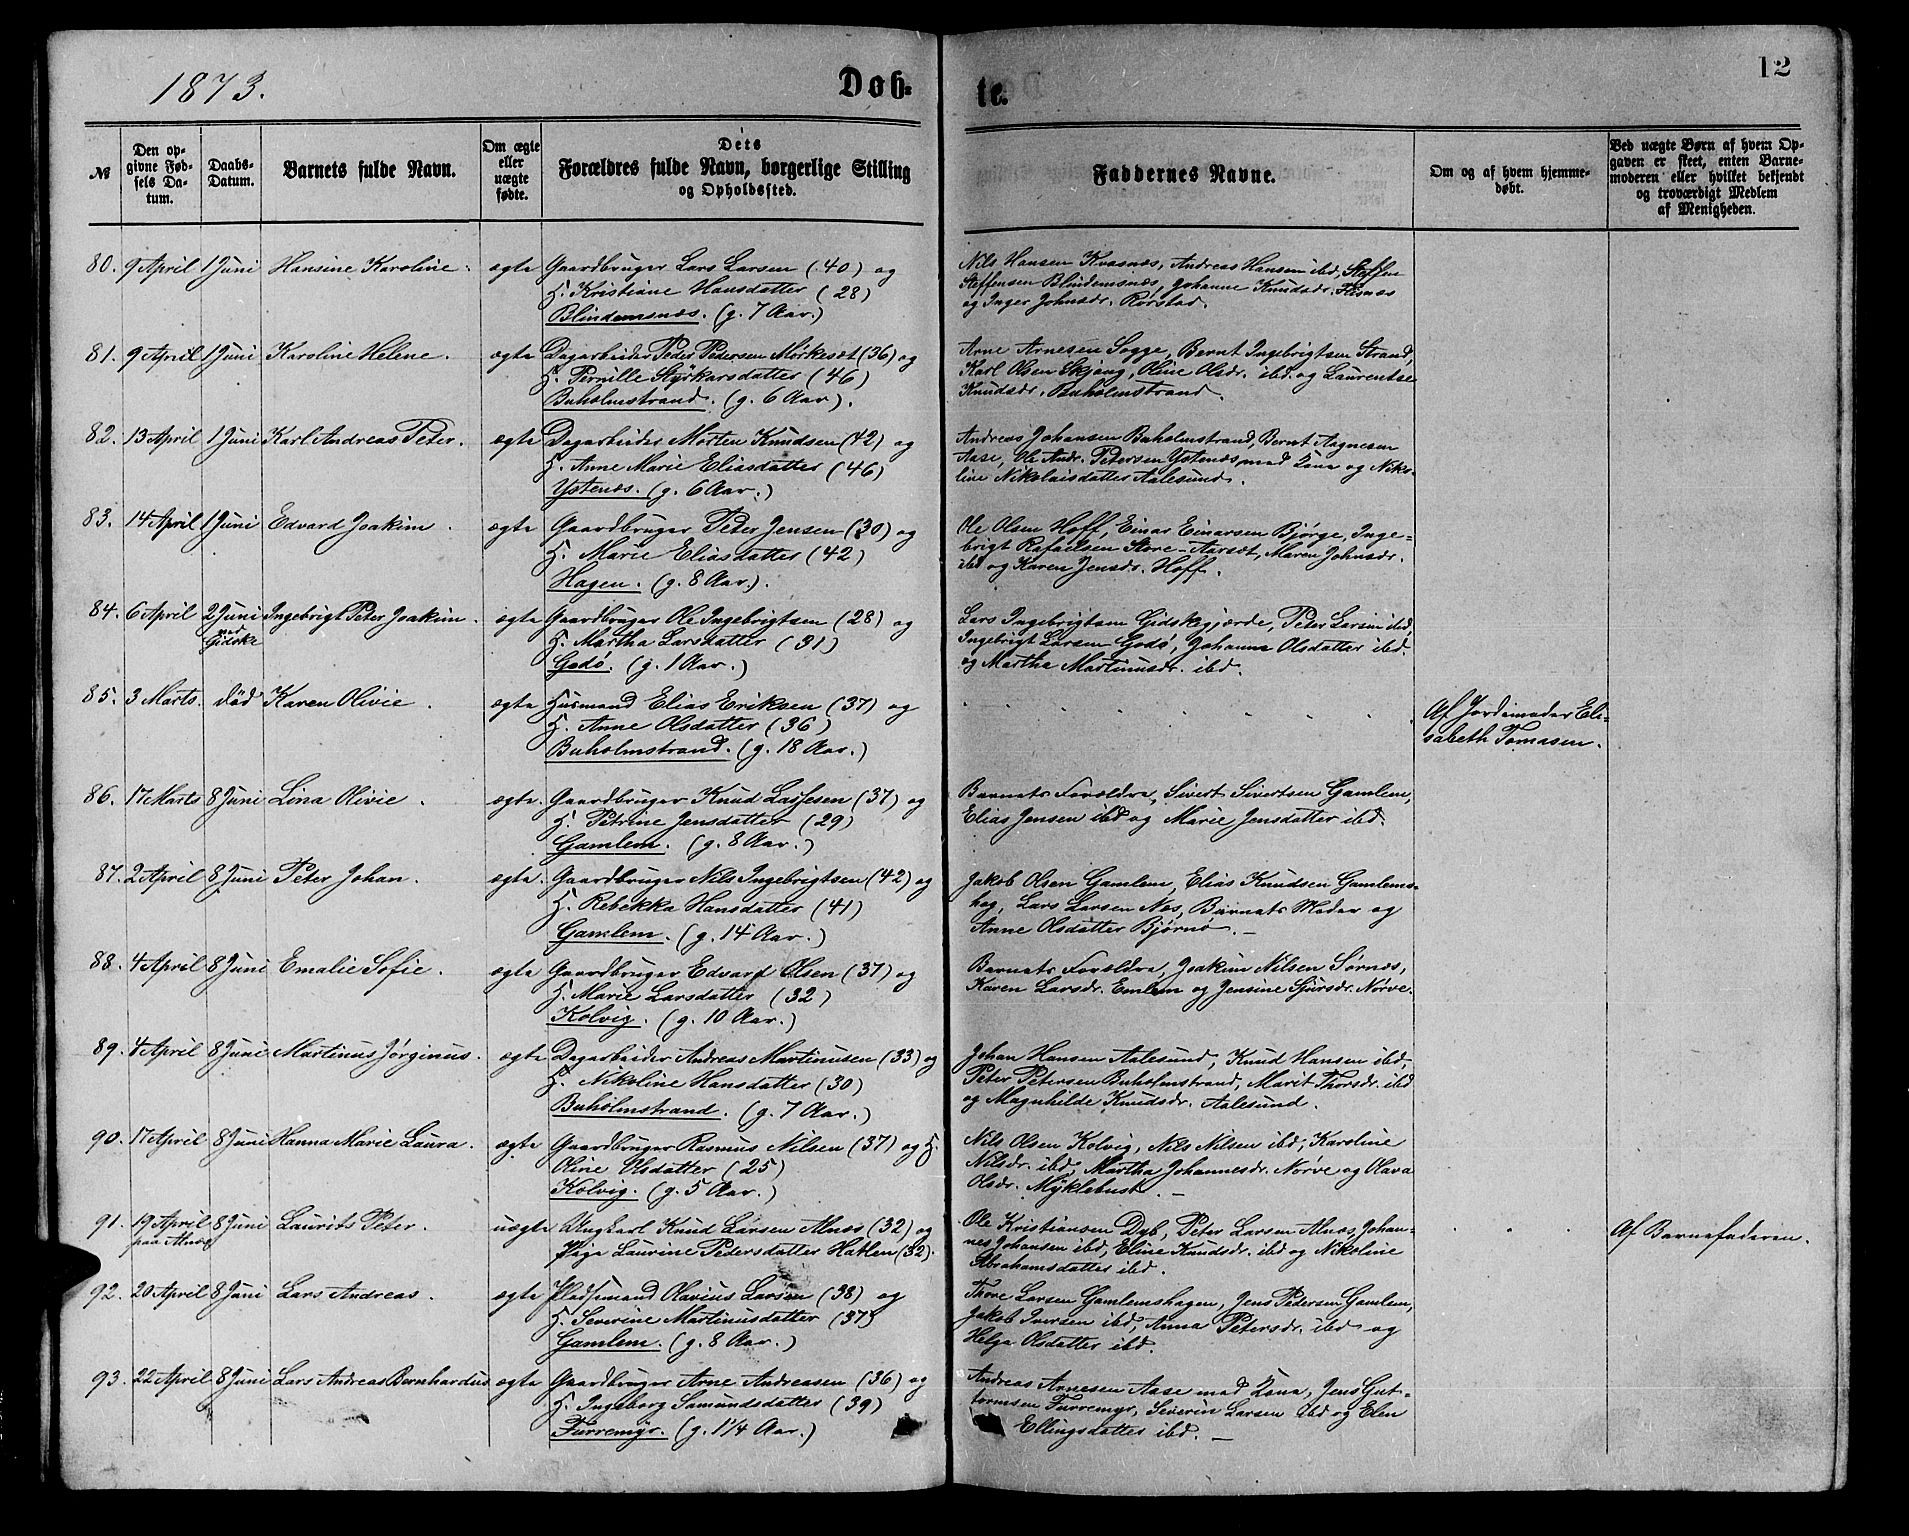 1873.
Døb-
te.
12
№
Den op-
givne Fød-
sels Da-
tum.
Daabs-
Datum.
Barnets fulde Navn.
Om ægte
eller
uægte
fødte.
Dets
Forældres fulde Navn, borgerlige Stilling
og Opholdssted.
Faddernes Navne.
Om og af hvem hjemme-
døbt.
Ved uægte Børn af hvem Op-
gaven er skeet, enten Barne-
moderen eller hvilket bekjendt
og troværdigt Medlem
af Menigheden.
80. 9 April 1 Juni Hansine Karoline. ægte Gaardbruger Lars Larsen (40) og
H. Kristiane Hansdatter (28)
Blindemsnæs. (g. 7 Aar.)
Nils Hansen Kvasnæs, Andreas Hansen ibd, Steffen
Steffensen Blindemsnæs, Johanne Knudsdr. Flisnæs
og Inger Johnsdr. Rørstad.
81. 9 April 1 Juni Karoline Helene. ægte Dagarbeider Peder Pedersen Mørkesæt (36) og
H. Pernille Styrkarsdatter (46)
Buholmstrand. (g. 6 Aar).
Arne Arnesen Sogge, Bernt Ingebrigtsen Strand,
Karl Olsen Skjong, Oline Olsdr. ibd. og Laurentse
Knudsdr. Buholmstrand.
82. 13 April 1 Juni Karl Andreas Peter. ægte Dagarbeider Morten Knudsen (42) og
H. Anne Marie Eliasdatter (46)
Ystenæs. (g. 6 Aar.)
Andreas Johansen Buholmstrand, Bernt Aagnesen
Aase, Ole Andr. Petersen Ystenæs med Kone og Niko-
line Nikolaisdatter Aalesund.
83. 14 April 1 Juni Edvard Joakim. ægte Gaardbruger Peter Jensen (30) og
H. Marie Eliasdatter (42)
Hagen. (g. 8 Aar.).
Ole Olsen Hoff, Einar Einarsen Bjørge, Inge-
brigt Rafaelsen Store-Aarsæt, Maren Johnsdr.
ibd og Karen Jensdr. Hoff.
84. 6 April 2 Juni Ingebrigt Peter Joakim. ægte Gaardbruger Ole Ingebrigtsen (28) og
ved
Gidske
H. Martha Larsdatter (31)
Godø. (g. 1 Aar.)
Lars Ingebrigtsen Gidskegjerde, Peter Larsen ibd,
Ingebrigt Larsen Godø, Johanne Olsdatter ibd.
og Martha Martinusdr. ibd.
85. 3 Marts. død Karen Olivie. ægte Husmand Elias Eriksen (37) og
H. Anne Olsdatter (36)
Buholmstrand. (g. 18 Aar.)
Af Jordemoder Eli-
sabeth Tomasen.
86. 17 Marts 8 Juni Lina Olivie. ægte. Gaardbruger Knud Lassesen (37) og
H. Petrine Jensdatter (29)
Gamlem. (g. 8 Aar.)
Barnets Forældre, Sivert Sivertsen Gamlem,
Elias Jensen ibd og Marie Jensdatter ibd.
87. 2 April 8 Juni Peter Johan. ægte. Gaardbruger Nils Ingebrigtsen (42) og
H. Rebekka Hansdatter (41)
Gamlem. (g. 14 Aar.)
Jakob Olsen Gamlem, Elias Knudsen Gamlems-
hag, Lars Larsen Næs, Barnets Moder og
Anne Olsdatter Bjørnø. -
88. 4 April 8 Juni Emalie Sofie. ægte Gaardbruger Edvard Olsen (37) og
H. Marie Larsdatter (32)
Kolvig. (g. 10 Aar.)
Barnets Forældre, Joakim Nilsen Sørnæs,
Karen Larsdr. Emlem og Jensine Sjursdr. Nørve.
89. 4 April 8 Juni Martinus Jørginus. ægte Dagarbeider Andreas Martinusen (33) og
H. Nikoline Hansdatter (30)
Buholmstrand. (g. 7 Aar.)
Johan Hansen Aalesund, Knud Hansen ibd,
Peter Petersen Buholmstrand, Marit Thorsdr. ibd
og Magnhilde Knudsdr. Aalesund.
90. 17 April 8 Juni Hanna Marie Laura. ægte Gaardbruger Rasmus Nilsen (37) og H.
Oline Olsdatter (25)
Kolvig. (g. 5 Aar.)
Nils Olsen Kolvig, Nils Nilsen ibd, Karoline
Nilsdr. ibd, Martha Johannesdr. Nørve og Olava
Olsdr. Myklebust. -
91. 19 April 8 Juni Laurits Peter. uægte Ungkarl Knud Larsen Alnæs (32) og
paa Alnæs
Pige Laurine Pedersdatter Hatlen (32).
Ole Kristiansen Dyb, Peter Larsen Alnæs, Johan-
nes Johansen ibd, Eline Knudsdr. ibd og Nikoline
Abrahamsdatter ibd.
Af Barnefaderen.
92. 20 April 8 Juni Lars Andreas. ægte Pladsmand Olavius Larsen (38) og
H. Severine Martinusdatter (37)
Gamlem. (g. 8 Aar.)
Thore Larsen Gamlemshagen, Jens Pedersen Gamlem,
Jakob Iversen ibd, Anna Petersdr. ibd og
Helga Olsdatter ibd.
93. 22 April 8 Juni Lars Andreas Bernhardus ægte Gaardbruger Arne Andreasen (36) og
H. Ingeborg Samundsdatter (39)
Furremyr. (g. 1¼ Aar.)
Andreas Arnesen Aase med Kone, Jens Gut-
tormsen Furremyr, Severin Larsen ibd og Elen
Ellingsdatter ibd. -